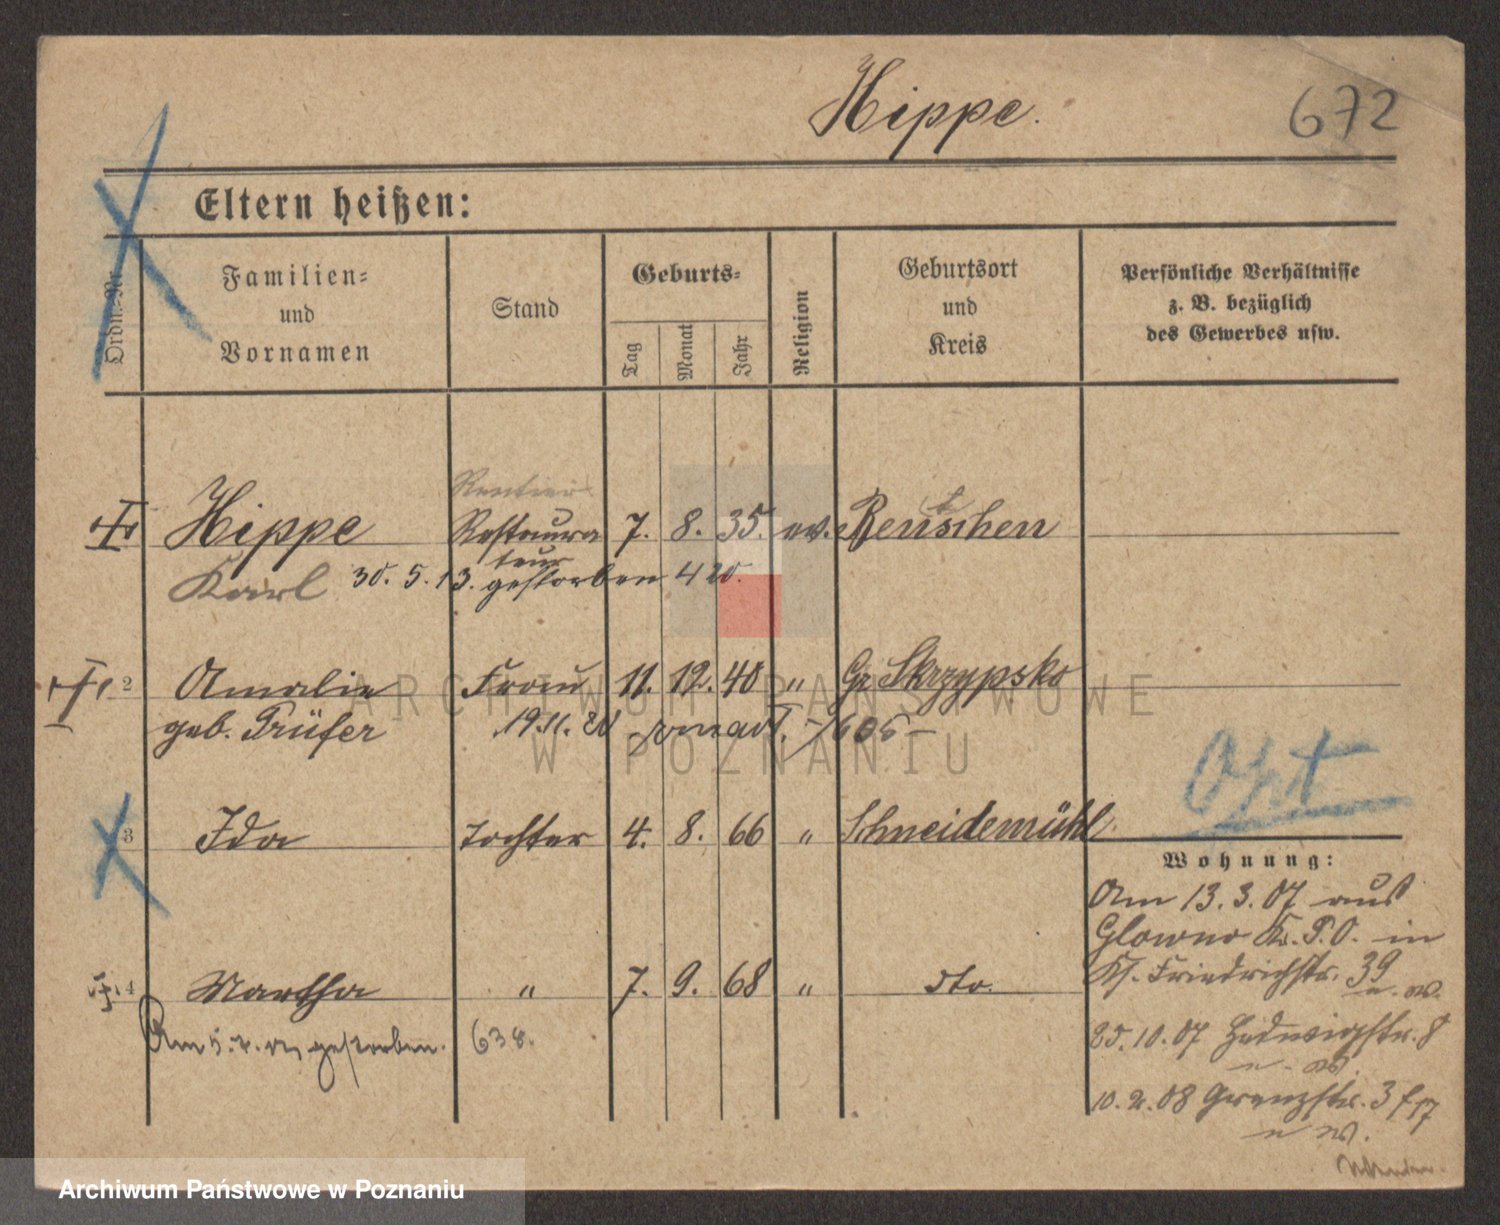 Hippe.
672
Eltern heißen:
Ordn.-Nr.
Familien-
und
Vornamen
Stand
Geburts-
Tag
Monat
Jahr
Religion
Geburtsort
und
Kreis
Persönliche Verhältnisse
z. B. bezüglich
des Gewerbes usw.
Rentier
Hippe Restaura 7. 8. 35. ev. Rentschen
teur
Karl 30. 5. 13. gestorben 420.
2 Amalie Frau 11. 12. 40 " Gr Skrzypsko
geb. Prüfer 19.11.
Opt
3 Ida Tochter 4. 8. 66 " Schneidemühl.
Wohnung:
Am 13. 3. 07 aus
Glowno Kr. P. O. in
Kf. Friedrichstr. 39
4 Martha " 7. 9. 68 " dto.
Am 5. gestorben. 638.
25. 10. 07 Hedwigstr. 8
10. 2. 08 Grenzstr. 3
ARCHIWUM PAŃSTWOWE
W POZNANIU
Archiwum Państwowe w Poznaniu